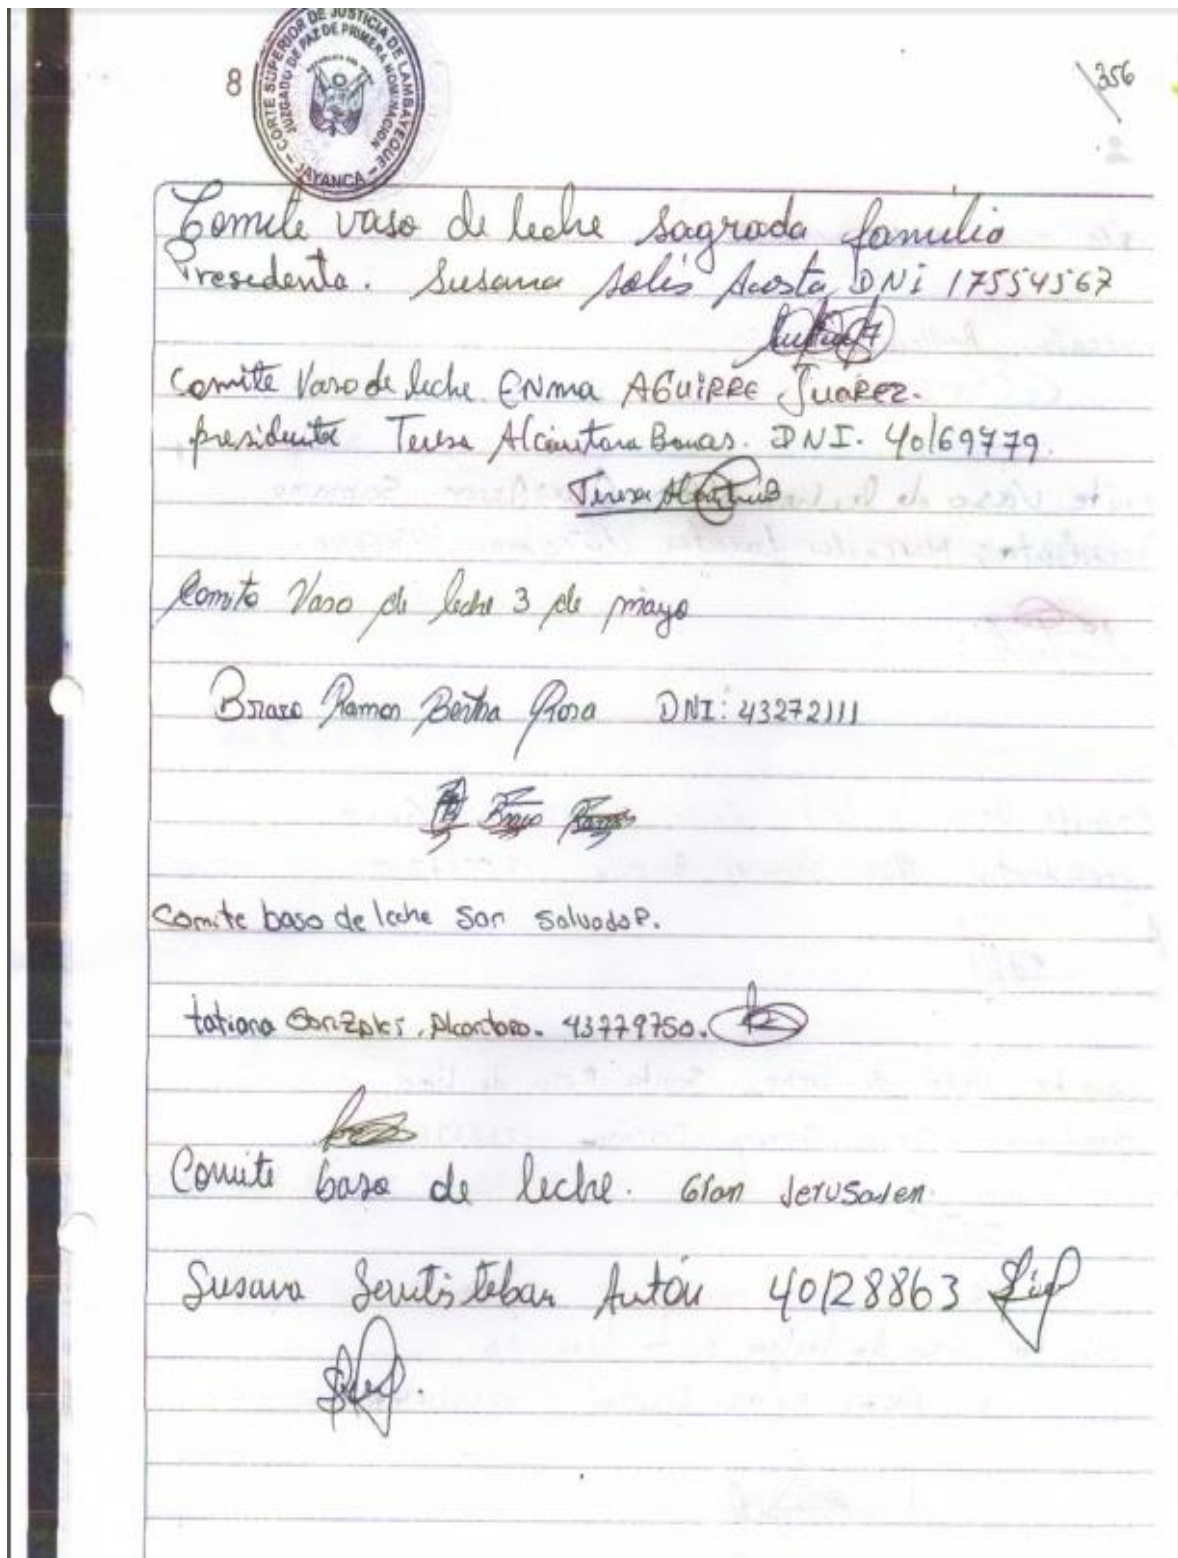 8
CORTE SUPERIOR DE JUSTICIA DE LAMBAYEQUE
JUZGADO DE PAZ DE PRIMERA NOMINACION
JAYANCA
356
Comite vaso de leche sagrada familia
Presidenta. Susana Solis Acosta DNi 17554567
Comite Vaso de leche ENma AGUiRRE JUAREZ.
presidenta Teresa Alcantara . DNI. 40169779.
Teresa
Comite Vaso de leche 3 de mayo
Bravo Ramos Bertha Rosa DNI: 43272111
Bravo Ramos
Comite baso de leche San SalvadoR.
tatiana Gonzales. Alcantara. 43779750.
Comite baso de leche. Gran Jerusalen
Susana Santisteban Antón 40128863